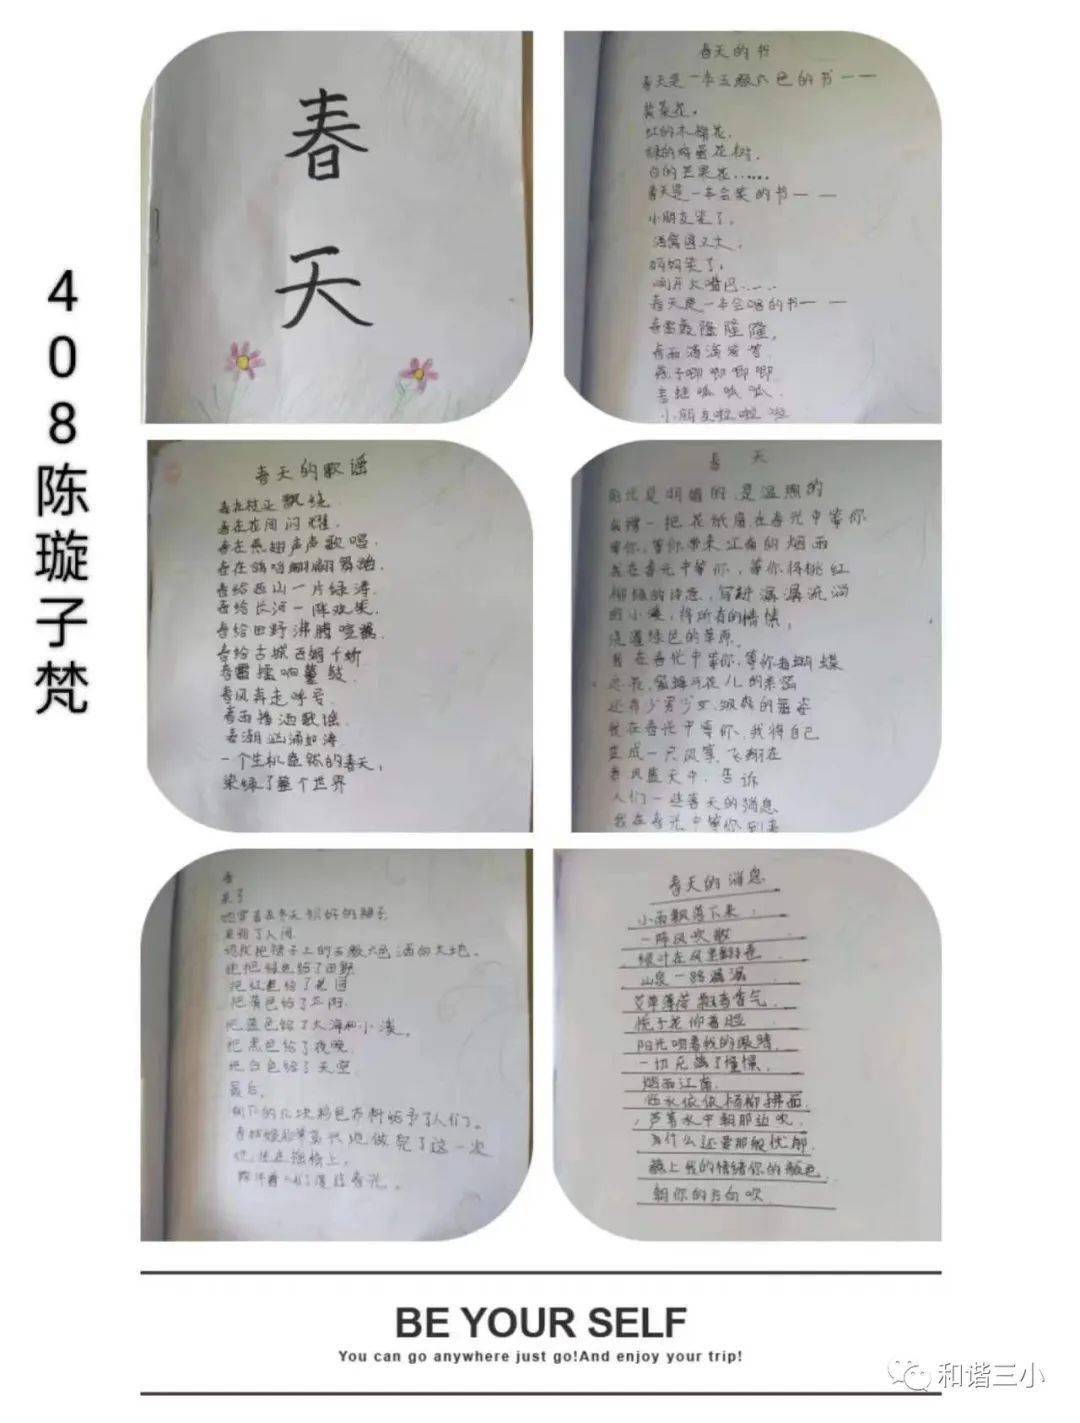 408陈璇子梵
春
天
春天的书
春天是一本五颜六色的书——
黄菜花,
红的木棉花,
绿的鸡蛋花树,
白的芒果花……
春天是一本会笑的书——
小朋友笑了,
酒窝圆又大,
妈妈笑了,
咧开大嘴巴……
春天是一本会唱的书——
春雷轰隆隆隆,
春雨滴滴答答
燕子唧唧唧唧
青蛙呱呱呱
小朋友啦啦啦
春天的歌谣
春在枝丫飘绕
春在花间闪耀,
春在燕翅声声歌唱,
春在鸽哨翩翩舞蹈
春给西山一片绿涛
春给长河一阵欢笑,
春给田野沸腾喧嚣
春给古城百媚千娇
春雷擂响鼙鼓
春风奔走呼号
春雨播洒歌谣
春潮汹涌如涛
一个生机盎然的春天,
染绿了整个世界
春 天
阳光是明媚的 是温煦的
我撑一把花纸扇,在春光中等你
等你,等你带来江南的烟雨
我在春光中等你,等你将桃红
柳绿的诗意,写进潺潺流淌
的小溪,将所有的情愫,
浇灌绿色的草原
我在春光中等你,等你看蝴蝶
还有少男少女
我在春光中等你,我将自己
变成一只风筝,飞翔在
春风蓝天中,告诉
人们一些春天的消息
我在春光中等你到来
春
来了
她穿着在冬天织好的裙子
来到了人间
她把绿色给了田野
把红色给了花园
把黄色给了太阳
把蓝色给了大海和小溪。
把黑色给了夜晚
把白色给了天空
最后,
剩下的几块粉色布料赐予了人们。
春天的消息
小雨飘落下来
一阵风吹散
绿叶在风里翻卷
山泉一路潺潺
艾草薄荷飘着香气
栀子花仰着脸
阳光吻着我的眼睛
一切充满了憧憬
烟雨江南
西水依依杨柳拂面
芦苇水中朝那边吹
为什么还要那般忧郁
蘸上我的情绪你的颜色
朝你的方向吹
BE YOUR SELF
You can go anywhere just go!And enjoy your trip!
和谐三小